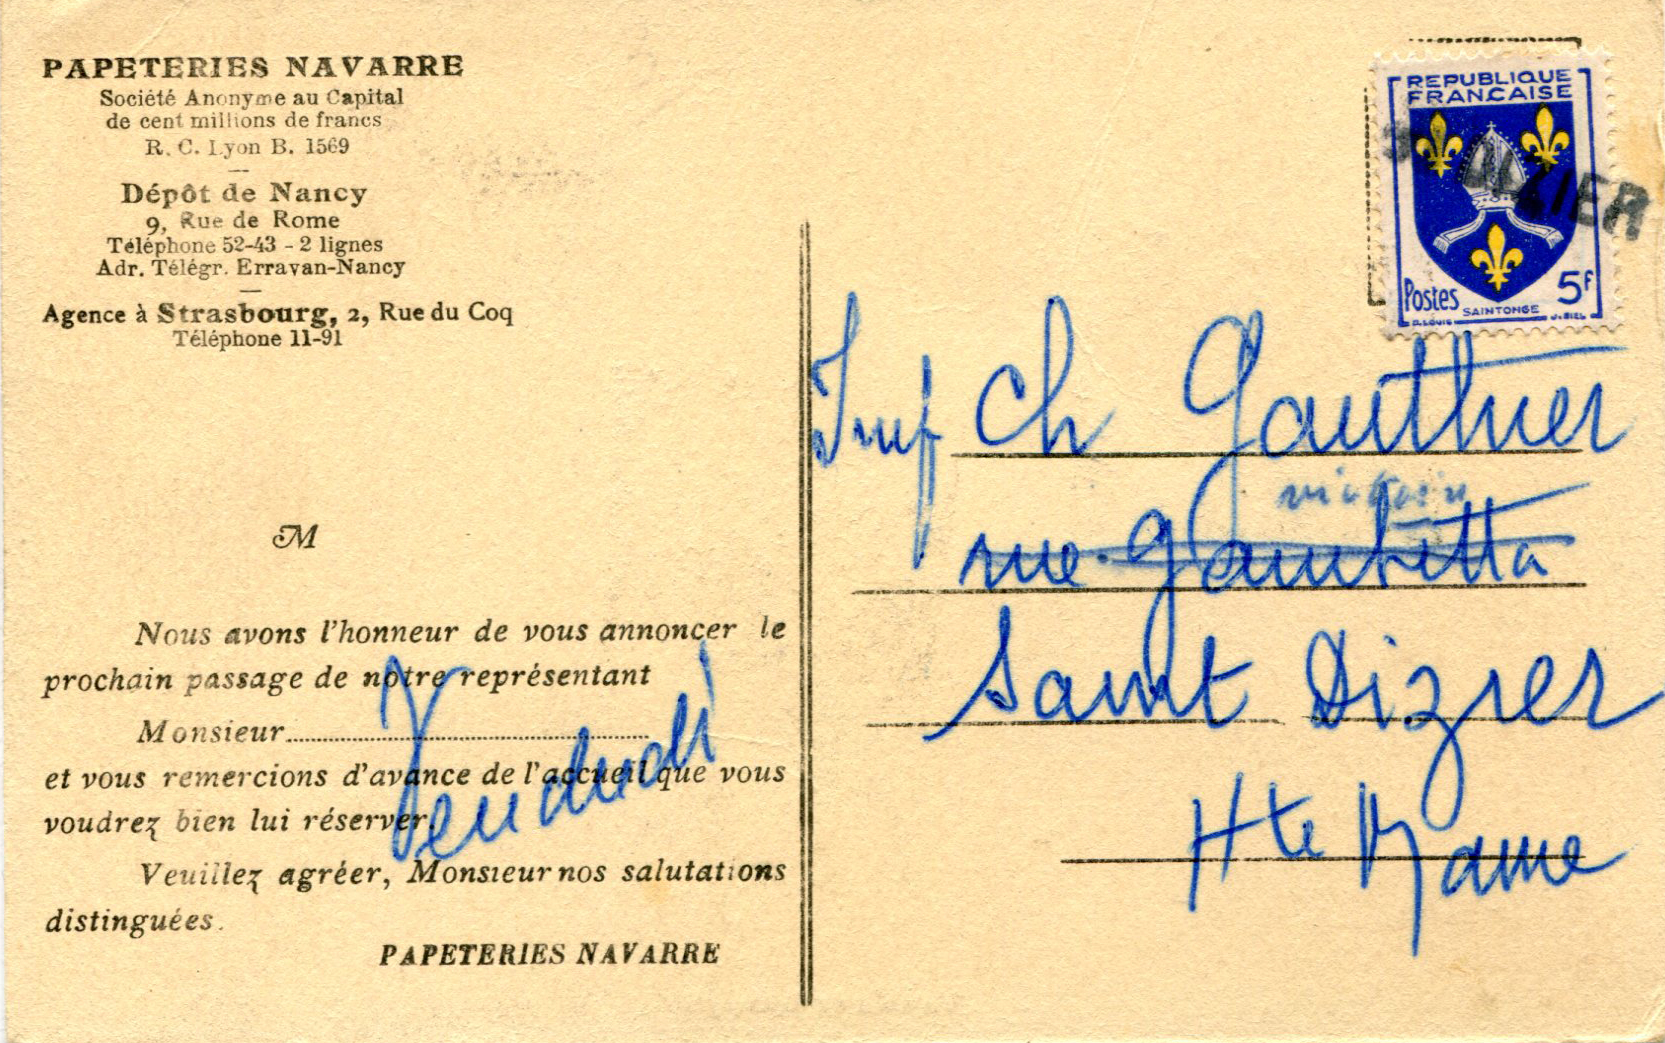 PAPETERIES NAVARRE
Société Anonyme au Capital
de cent millions de francs
R. C. Lyon B. 1569
Dépôt de Nancy
9, Rue de Rome
Téléphone 52-43 - 2 lignes
Adr. Télégr. Erravan-Nancy
Agence à Strasbourg, 2, Rue du Coq
Téléphone 11-91
M
Nous avons l'honneur de vous annoncer le
prochain passage de notre représentant
Monsieur
et vous remercions d'avance de l'accueil que vous
voudrez bien lui réserver.
Vendredi
Veuillez agréer, Monsieur nos salutations
distinguées.
PAPETERIES NAVARRE
REPUBLIQUE
FRANÇAISE
DIZIER
Postes
SAINTONGE
5F
R. LOUIS
J. BIEL
Ch Gauthier
rue Gambetta
Saint Dizier
Hte Marne